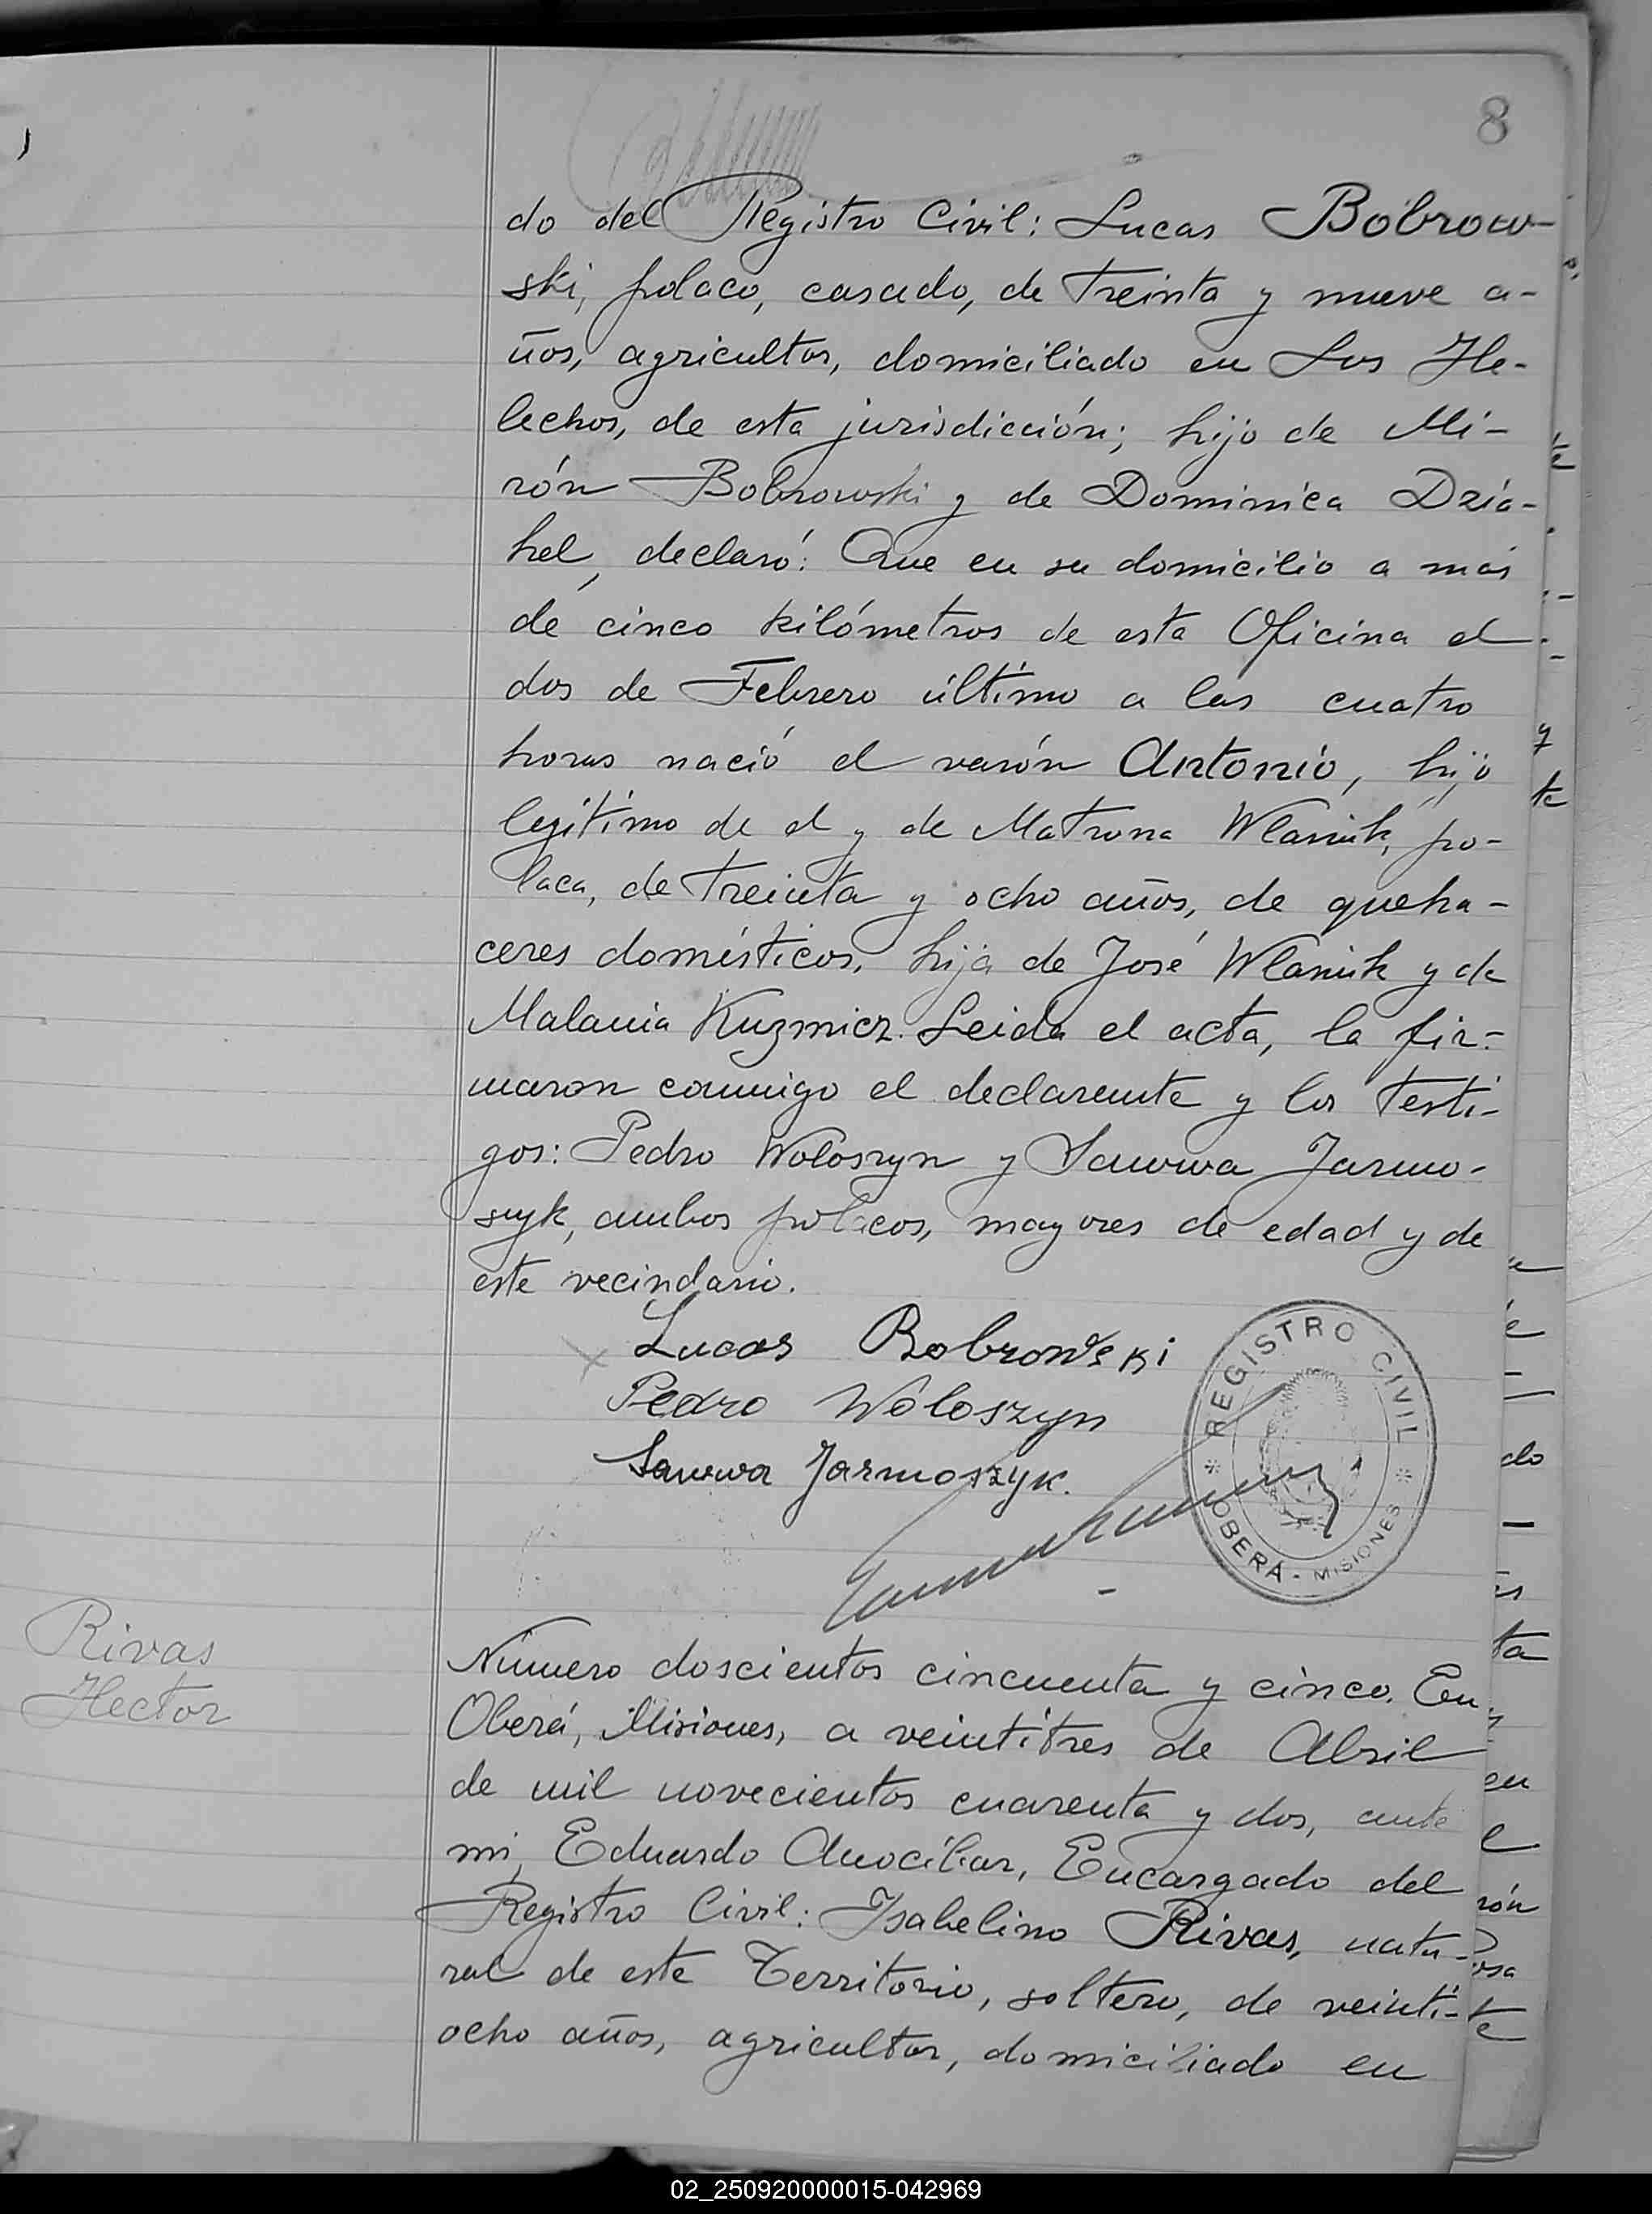 8
do del Registro Civil: Lucas Bobrow-
ski, polaco, casado, de treinta y nueve a-
ños, agricultor, domiciliado en Los He-
lechos, de esta jurisdicción; hijo de Mi-
rón Bobrowski y de Dominica Dzia-
hel, declaró: Que en su domicilio a más
de cinco kilómetros de esta Oficina el
dos de Febrero último a las cuatro
horas nació el varón Antonio, hijo
legítimo de el y de Matrona Wlasiuk, po-
laca, de treinta y ocho años, de queha-
ceres domésticos, hija de José Wlasiuk y de
Malania Kuzmicz. Leida el acta, la fir-
maron conmigo el declarante y los testi-
gos: Pedro Woloszyn y Sawwa Jarmo-
szyk, ambos polacos, mayores de edad y de
este vecindario.
Lucas Bobrowski
Pedro Woloszyn
Sawwa Jarmoszyk.
REGISTRO CIVIL
OBERÁ - MISIONES
Rivas
Hector
Número doscientos cincuenta y cinco. En
Oberá, Misiones, a veintitres de Abril
de mil novecientos cuarenta y dos, ante
mi, Eduardo Anocíbar, Encargado del
Registro Civil: Isabelino Rivas, natu-
ral de este Territorio, soltero, de veinti-
ocho años, agricultor, domiciliado en
02_250920000015-042969